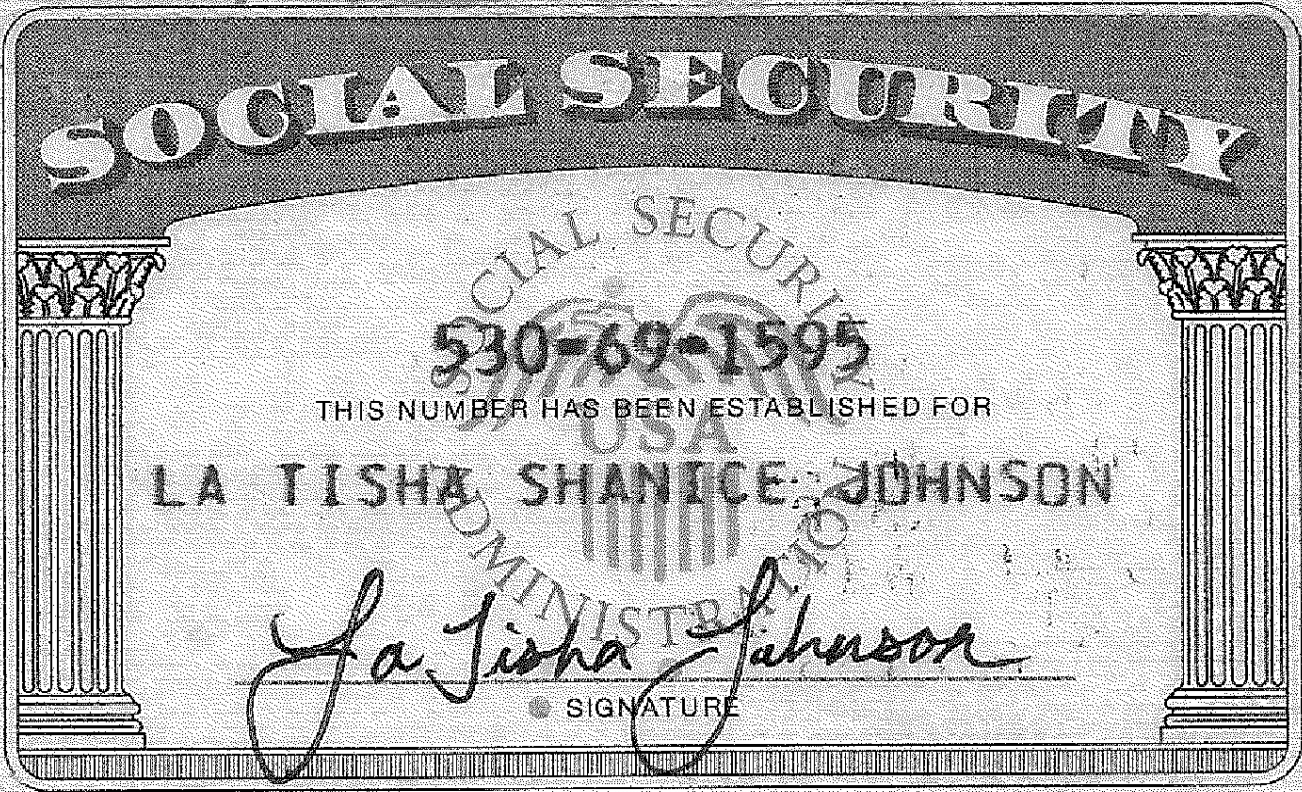 SOCIAL SECURITY
SOCIAL SECURITY ADMINISTRATION
530-69-1595
THIS NUMBER HAS BEEN ESTABLISHED FOR
USA
LA TISHA SHANICE JOHNSON
La Tisha Johnson
SIGNATURE